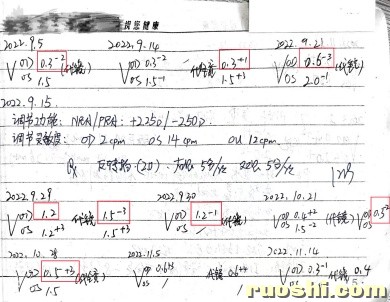 损您健康
2022.9.5 2022.9.14 2022.9.21
V OD 0.3⁻² (代镜) V OD 0.3⁻² 代镜 0.3⁺¹ V OD 0.6⁻³ (代镜)
OS 1.5 OS 1.5⁻¹ 1.5⁺¹ OS 2.0⁻¹
2022.9.15.
调节功能: NRA/PRA: +2.25D/-2.50D.
调节灵敏度: OD 2cpm OS 14cpm OU 12cpm.
Rx 反转拍(2D): 5分/次 5分/次
2022.9.29 2022.9.30 2022.10.21
V OD 1.2 (代镜) 1.5⁻³ V OD 1.2⁻¹ (代镜) V OD 0.4⁺² (代镜) V OD 0.5⁻²
OS 1.2⁺³ 1.5⁺³ OS / OS 1.5⁻²
2022.10.28 2022.11.5 2022.11.14
V OD 0.5⁺³ (代镜) V OD 0.6⁺⁴ 代镜 0.6⁺⁴ V OD 0.3⁻¹ (代镜) 0.4
OS 1.5 OS / OS 1.5
ruoshi.com